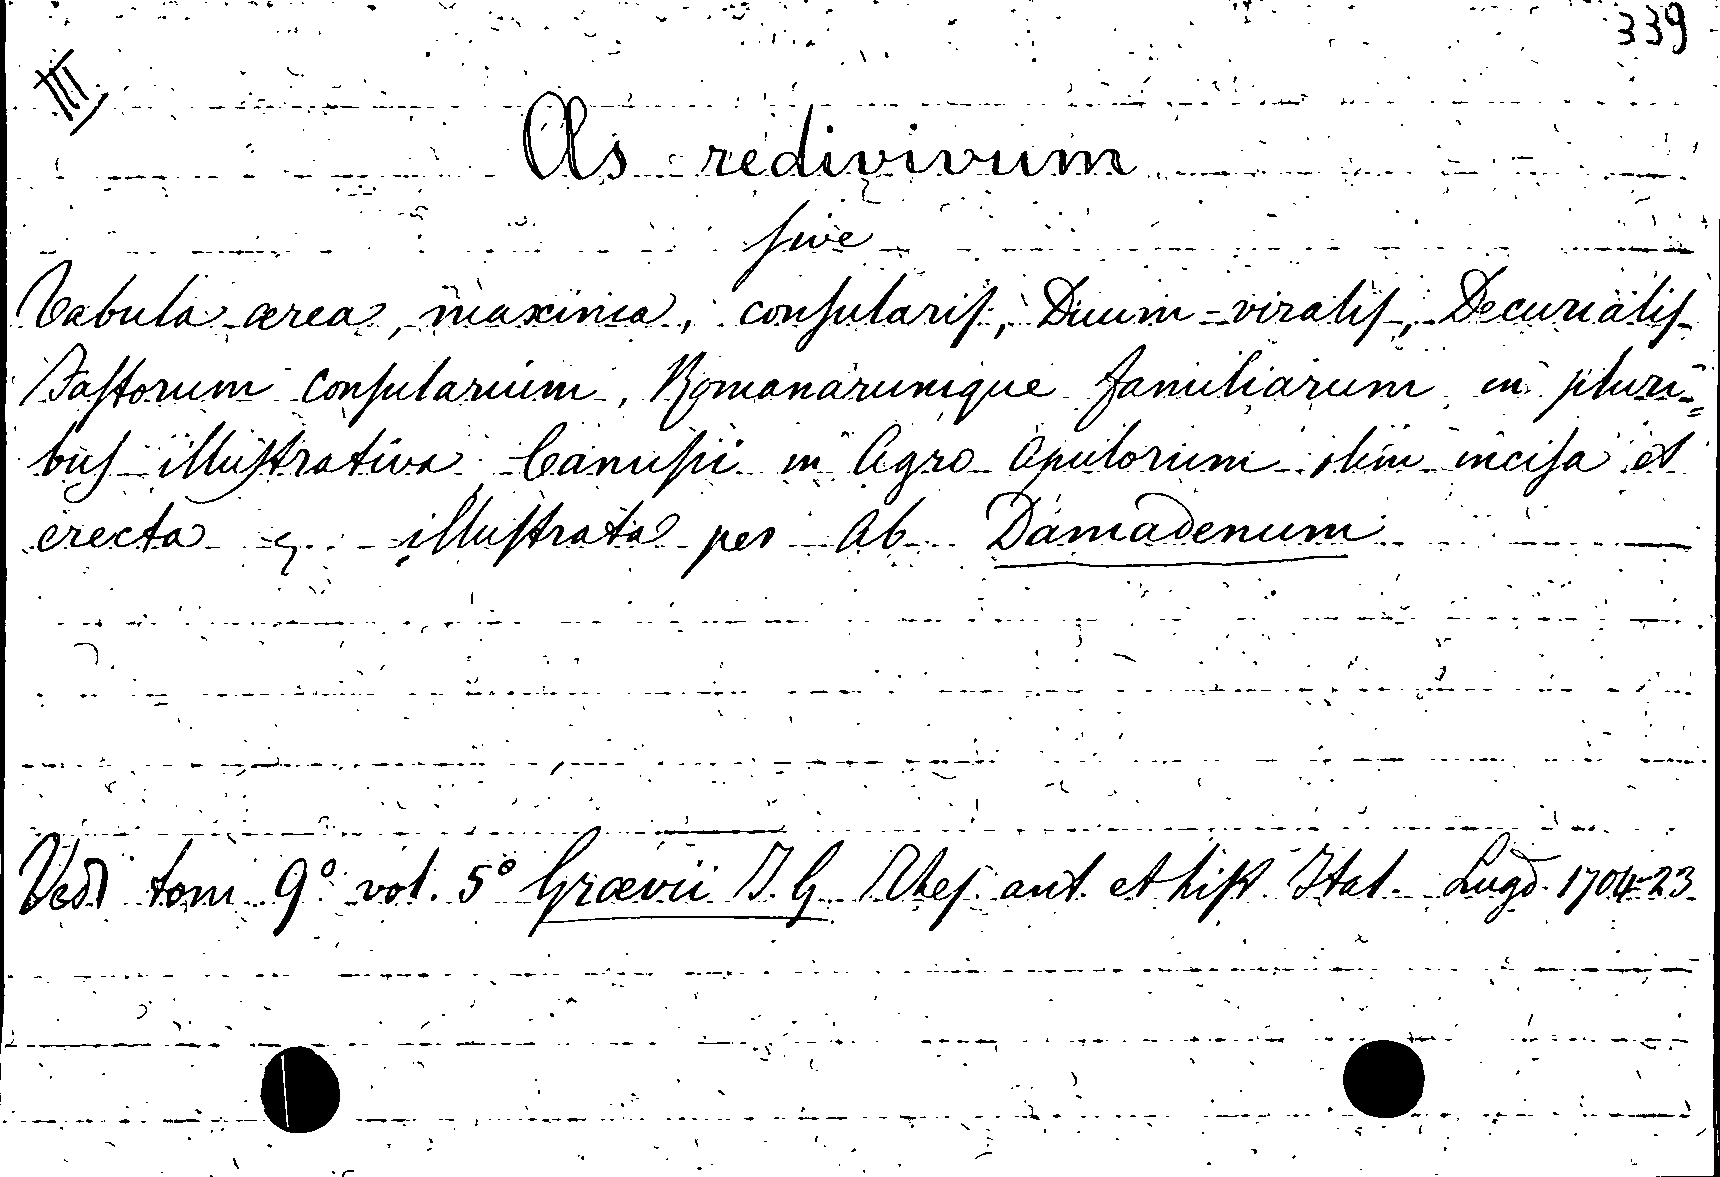 339
III
Æs redivivum
sive
Tabula ærea, maxima, consularis, Duum-viralis, Decurialis
Fastorum consularium, Romanarumque familiarum in pluri=
bus illustrativa Canusii in Agro Apulorum olim incisa et
erecta & illustrata per Ab. Damadenum
Vedi tom 9º vol. 5º Grævii J. G. Thes. ant. et hist. Ital. Lugd. 1704-23